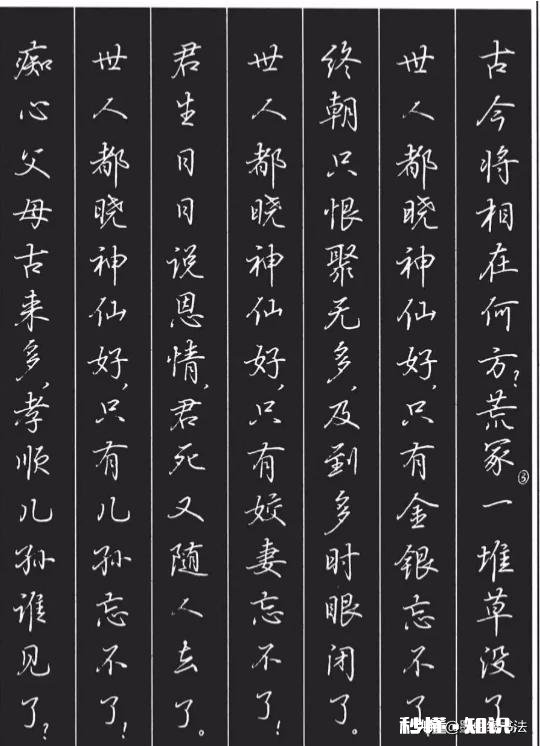 古今将相在何方?荒冢③一堆草没了
世人都晓神仙好,只有金银忘不了
终朝只恨聚无多,及到多时眼闭了。
世人都晓神仙好,只有姣妻忘不了!
君生日日说恩情,君死又随人去了。
世人都晓神仙好,只有儿孙忘不了!
痴心父母古来多,孝顺儿孙谁见了?
秒懂 知识
书法